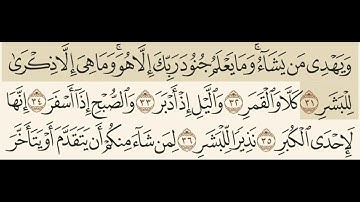 وَيَهْدِى مَن يَشَآءُ ۚ وَمَا يَعْلَمُ جُنُودَ رَبِّكَ إِلَّا هُوَ ۚ وَمَا هِىَ إِلَّا ذِكْرَىٰ
لِلْبَشَرِ ٣١ كَلَّا وَٱلْقَمَرِ ٣٢ وَٱلَّيْلِ إِذْ أَدْبَرَ ٣٣ وَٱلصُّبْحِ إِذَآ أَسْفَرَ ٣٤ إِنَّهَا
لَإِحْدَى ٱلْكُبَرِ ٣٥ نَذِيرًا لِّلْبَشَرِ ٣٦ لِمَن شَآءَ مِنكُمْ أَن يَتَقَدَّمَ أَوْ يَتَأَخَّرَ